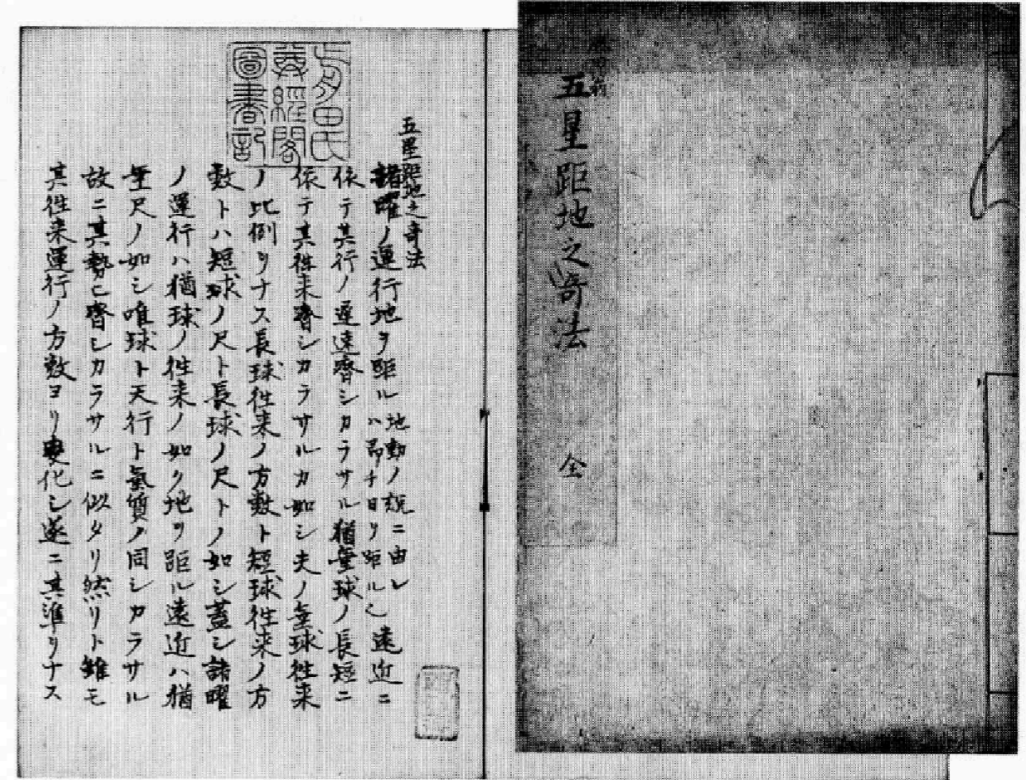 五星距地之奇法
全
前田氏
尊經閣
圖書記
五星距地之奇法
諸曜ノ運行地ヲ距ル
地動ノ説ニ由レ
ハ即チ日ヲ距ル也
遠近ニ
依テ其行ノ遲速齊シカラサル猶垂球ノ長短ニ
依テ其徃来齊シカラサルカ如シ夫ノ垂球徃来
ノ比例ヲナス長球徃来ノ方数ト短球徃来ノ方
数トハ短球ノ尺ト長球ノ尺トノ如シ蓋シ諸曜
ノ運行ハ猶球ノ徃来ノ如ク地ヲ距ル遠近ハ猶
垂尺ノ如シ唯球ト天行ト氣質ノ同シカラサル
故ニ其勢モ齊シカラサルニ似タリ然リト雖モ
其徃来運行ノ方数ヨリ変化シ遂ニ其準ヲナス